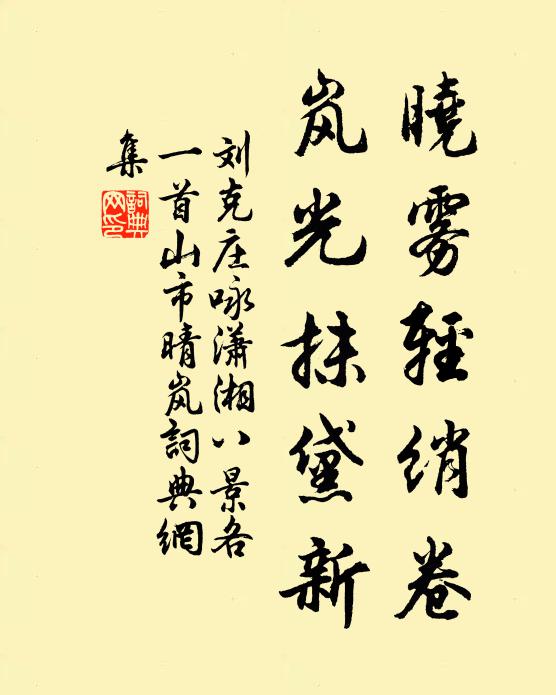 曉雾輕绡卷
岚光抹黛新
刘克庄咏潇湘八景各
一首山市晴岚詞典網
集
詞典
网印